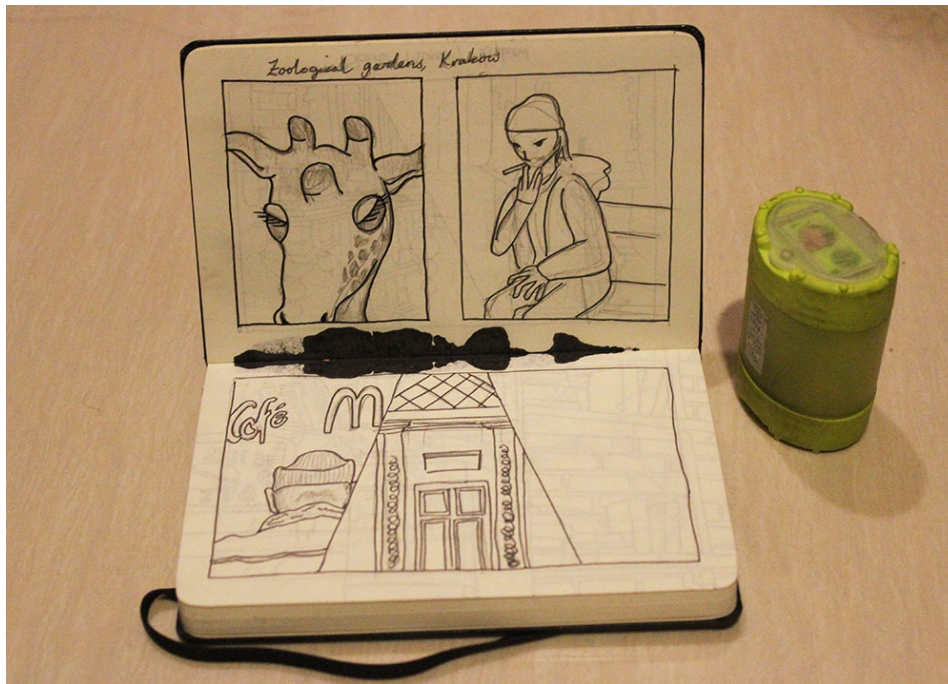 Zoological gardens, Krakow
Café
M